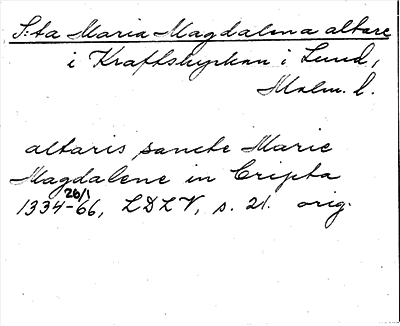 S:ta Maria Magdalena altare
i Kraftskyrkan i Lund,
Malm. l.
altaris sancte Marie
Magdalene in Cripta
1334-26/1 66, LDLV, s. 21. orig.